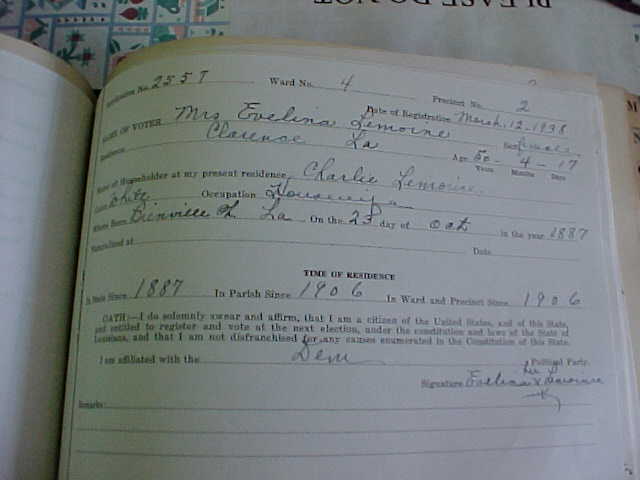 PLEASE DO NOT
Registration No. 2557 Ward No. 4 Precinct No. 2
Date of Registration March, 12-1938
NAME OF VOTER Mrs Evelina Lemoine Sex female
Residence Clarence La Age 50 - 4 - 17
Years Months Days
Name of Householder at my present residence, Charlie Lemoine
Color White Occupation Housewife
Where Born Bienville La On the 23 day of Oct in the year 1887
Naturalized at Date
TIME OF RESIDENCE
In State Since 1887 In Parish Since 1906 In Ward and Precinct Since 1906
OATH:—I do solemnly swear and affirm, that I am a citizen of the United States, and of this State,
and entitled to register and vote at the next election, under the constitution and laws of the State of
Louisiana, and that I am not disfranchised for any causes enumerated in the Constitution of this State.
I am affiliated with the Dem Political Party.
Signature Evelina x Lemoine
Remarks: